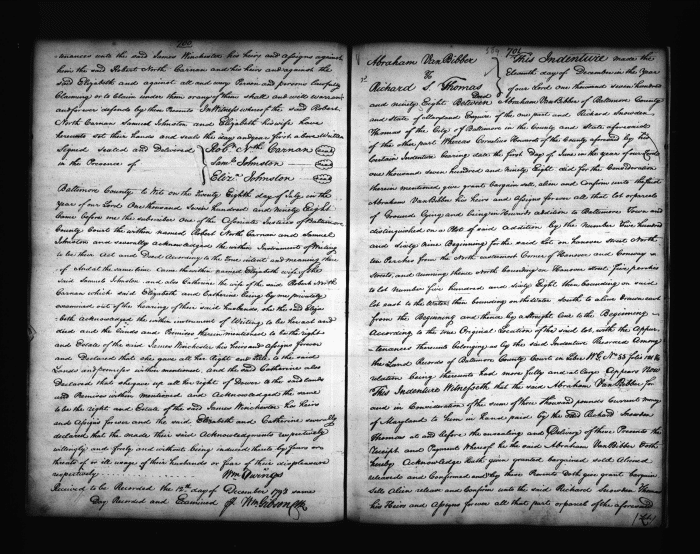 700
-tenances unto the said James Winchester his heirs and assigns against
him the said Robert North Carnan and his heirs and against the
said Elizabeth and against all and every Person and persons lawfully
Claiming or to Claim under them or any of them shall and will warrant
and forever defend by these Presents In Witness whereof the said Robert
North Carnan Samuel Johnston and Elizabeth his wife have
hereunto set their hands and seals the day and year first above Written
Signed sealed and Delivered
in the Presence of
Robt. Nth Carnan
Saml. Johnston
Elizr. Johnston
Baltimore County to Wit on the twenty Eighth day of July in the
year of our Lord One thousand Seven hundred and ninety Eight
Came before me the subscriber One of the Associate Justices of Baltimore
County Court the within named Robert North Carnan and Samuel
Johnston and severally acknowledged the within Instrument of Writing
to be their Act and Deed According to the true intent and meaning there
of And at the same time Came the within named Elizabeth wife of the
said Samuel Johnston and also Catherine the wife of the said Robert North
Carnan which said Elizabeth and Catherine being by me privately
examined out of the hearing of their said husbands she the said Eliza
beth acknowledged the within instrument of Writing to be her act and
deed and the Lands and Premises therein mentioned to be the right
and Estate of the said James Winchester his heirs and assigns forever
and Declared that she gave all her Right and title to the said
Lands and premises within mentioned and the said Catherine also
Declared that she gave up all her right of Dower to the said lands
and Premises within mentioned and Acknowledged the same
to be the right and Estate of the said James Winchester his Heirs
and Assigns forever and the said Elizabeth and Catherine severally
declared that the made their said Acknowledgments respectively
willingly and freely and without being induced thereto by fears or
threats of or ill usage of their husbands or fear of their displeasure
respectively
Wm Owings
Received to be Recorded the 12th day of December 1798 same
Day Recorded and Examined Wm Gibson Clk
701
Abraham Van Bibber
To
Richard S. Thomas
Deed
This Indenture made the
Eleventh day of December in the Year
of our Lord one thousand Seven hundred
and ninety Eight Between Abraham Van Bibber of Baltimore County
and State of Maryland Esquire of the one part and Richard Snowden
Thomas of the City of Baltimore in the County and State aforesaid
of the other part Whereas Cornelius Howard of the County aforesaid by his
Certain Indenture bearing date the first day of June in the year of our Lord
one thousand seven hundred and ninety Eight did for the Consideration
therein mentioned give grant bargain sell alien and Confirm unto the said
Abraham Van Bibber his heirs and Assigns forever all that lot or parcels
of Ground lying and being in Howards addition to Baltimore Town and
distinguished on a Plot of said Addition by the Number Five hundred
and Sixty nine Beginning for the said Lot on hanover Street North
ten Perches from the North easternmost Corner of Hanover and Conway
Streets and running thence North bounding on Hanover street five perches
to lot Number five hundred and sixty Eight then bounding on said
lot East to the Water then bounding on the Water South to a line drawn East
from the Beginning and thence by a straight line to the Beginning
According to the true Original Location of the said lot with the Appur
-tenances thereunto belonging as by the said Indenture Recorded Among
the Land Records of Baltimore County Court in Liber W.G. No. 55 folio
relation being thereunto had more fully and at large Appears Now
This Indenture Witnesseth that the said Abraham Van Bibber for
and in Consideration of the sum of three thousand pounds Current money
of Maryland to him in hand paid by the said Richard Snowden
Thomas at and before the ensealing and Delivery of these Presents the
Receipt and Payment Whereof he the said Abraham Van Bibber doth
hereby Acknowledge Hath given granted bargained sold Aliened
released and Confirmed and by these Presents Doth give grant bargain
sell Alien release and Confirm unto the said Richard Snowden Thomas
his Heirs and Assigns forever all that part or parcel of the aforesaid